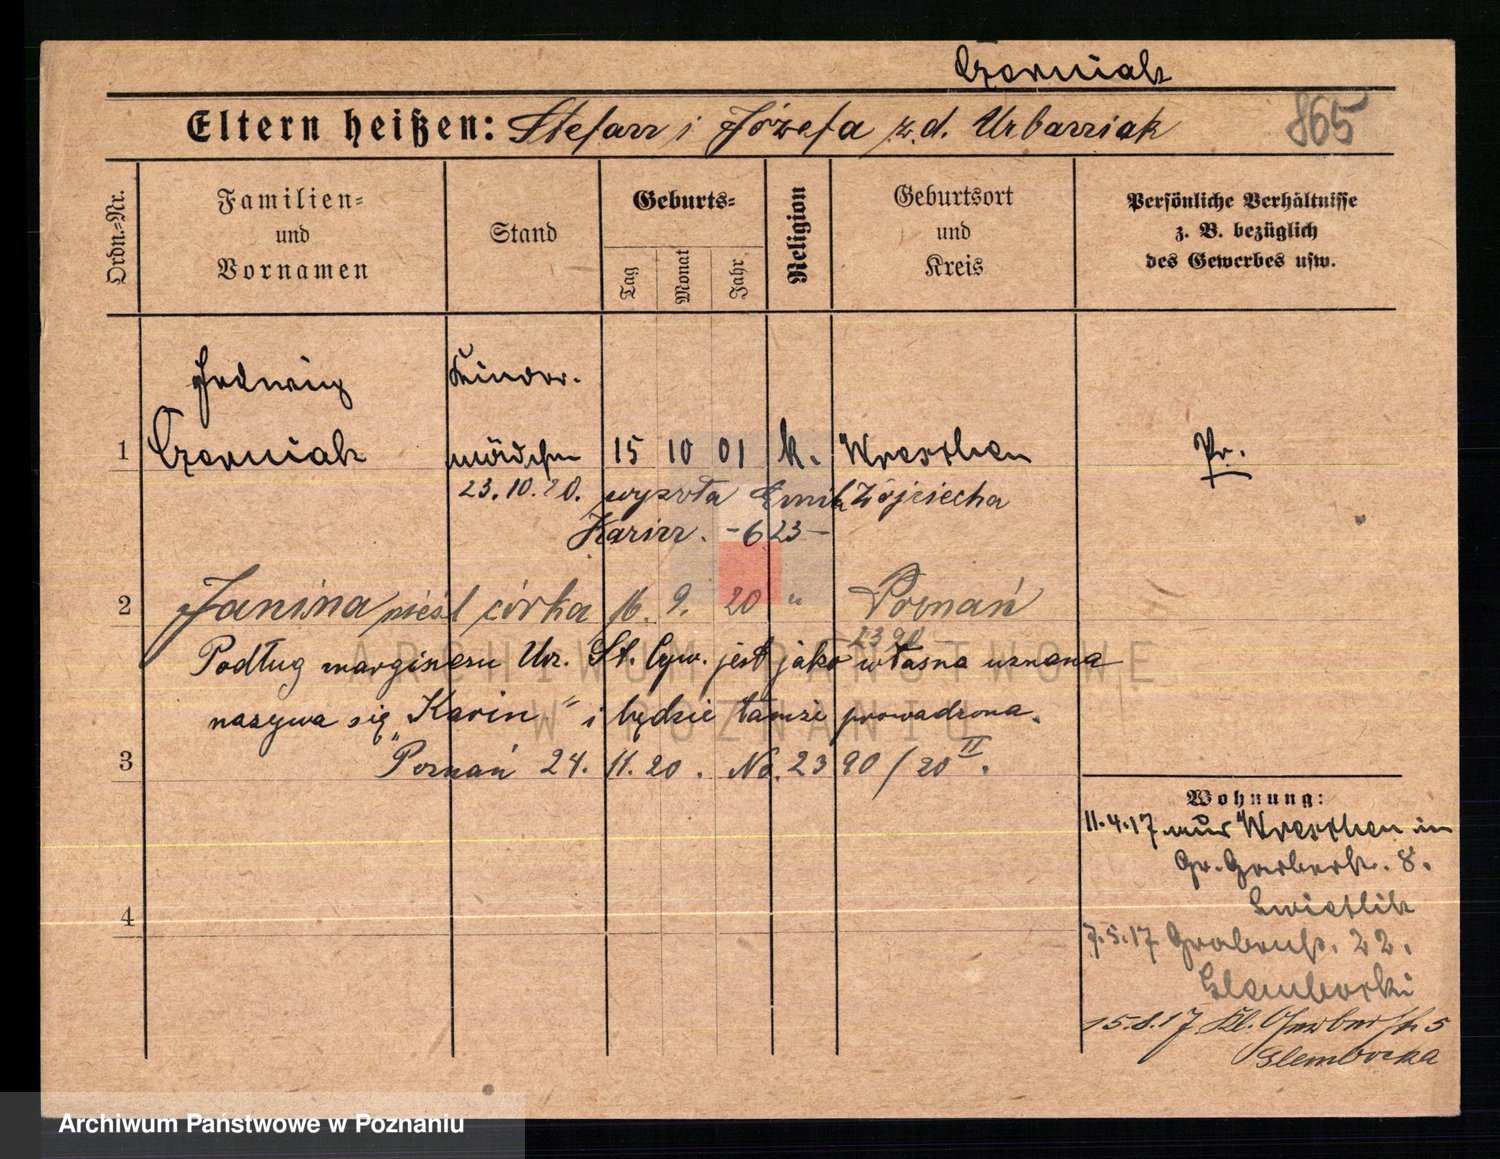 Czerniak
Eltern heißen: Stefan i Józefa z.d. Urbaniak
865
Ordn.-Nr.
Familien-
und
Vornamen
Stand
Geburts-
Tag
Monat
Jahr
Religion
Geburtsort
und
Kreis
Persönliche Verhältnisse
z. B. bezüglich
des Gewerbes usw.
Hedwig Kinder-
1 Czerniak mädchen 15 10 01 k. Wreschen Pr.
23.10.20. wyszła Emila Wojciecha
Karin. -623-
2 Janina nieśl córka 16. 9. 20 " Poznań
2390
Podług marginesu Urz. St. Cyw. jest jako własna uznana
nazywa się „Karin" i będzie tamże prowadzona.
3 Poznań 24. 11. 20. No. 2390/20 II.
4
Wohnung:
11.4.17 aus Wreschen in
Gr. Gerberst. 8.
Swietlik
7.5.17 Grabenst. 22.
Glembocki
15.8.17 Kl. Gerberstr. 5
Glembocka
ARCHIWUM PAŃSTWOWE
W POZNANIU
Archiwum Państwowe w Poznaniu